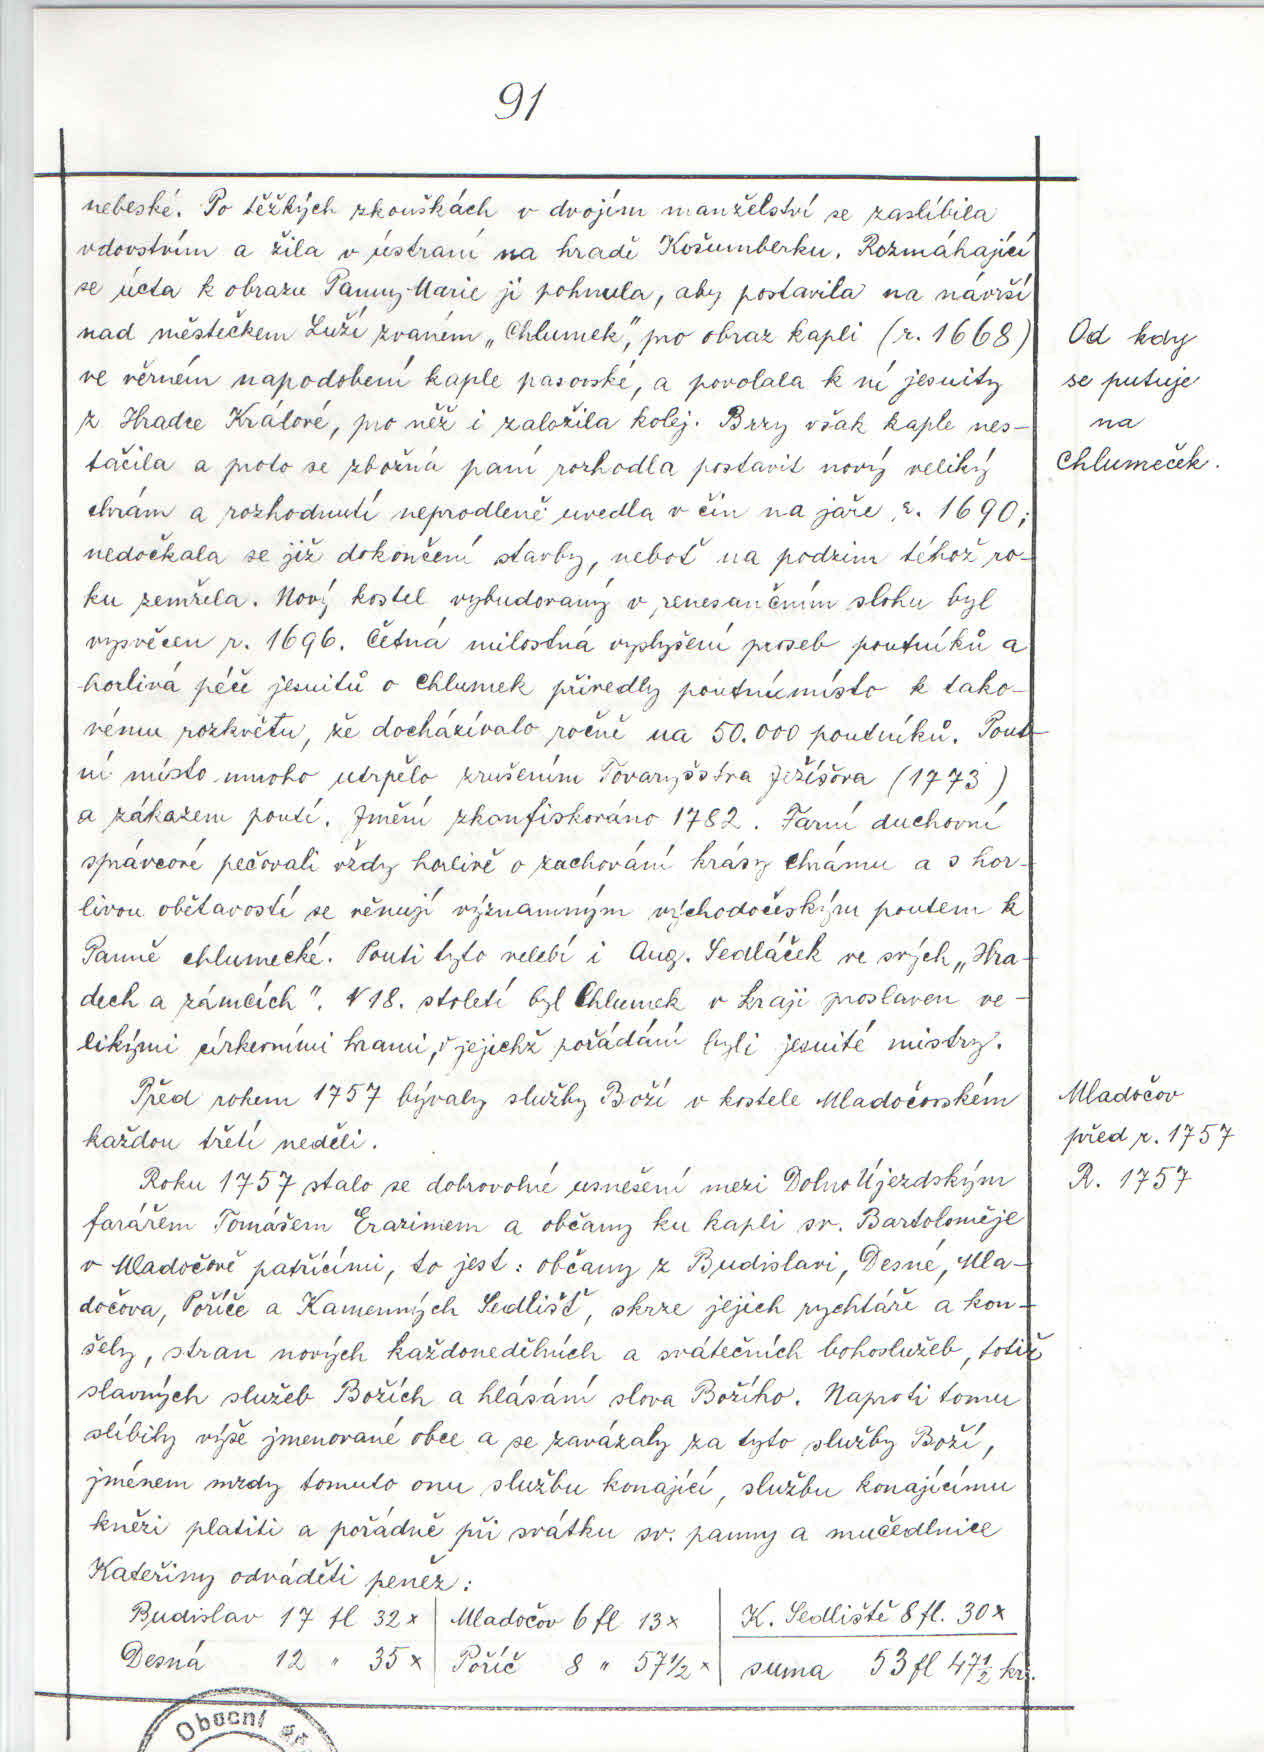 91
nebeské. Po těžkých zkouškách v dvojím manželství se zaslíbila
vdovstvím a žila v ústraní na hradě Košumberku. Rozmáhající
se úcta k obrazu Panny Marie ji pohnula, aby postavila na návrší
nad městečkem Luží zvaném „Chlumek“, pro obraz kapli (r. 1668)
ve věrném napodobení kaple pasovské, a povolala k ní jesuity
z Hradce Králové, pro něž i založila kolej. Brzy však kaple nes-
táčila a proto se zbožná paní rozhodla postavit nový veliký
chrám a rozhodnutí neprodleně uvedla v čin na jaře r. 1690;
nedočkala se již dokončení stavby, neboť na podzim téhož ro-
ku zemřela. Nový kostel vybudovaný v renesančním slohu byl
vysvěcen r. 1696. Četná milostná vyslyšení proseb poutníků a
horlivá péče jesuitů o Chlumek přivedly poutní místo k tako-
vému rozkvětu, že docházívalo ročně na 50.000 poutníků. Pout-
ní místo mnoho utrpělo zrušením Tovaryšstva Ježíšova (1773)
a zákazem poutí. Jmění zkonfiskováno 1782. Farní duchovní
správcové pečovali vždy horlivě o zachování krásy chrámu a s hor-
livou obětavostí se věnují významným východočeským poutem k
Panně chlumecké. Pouti tyto velebí i Aug. Sedláček ve svých „Hra-
dech a zámcích“. V 18. století byl Chlumek v kraji proslaven ve-
likými církevními hrami, v jejichž pořádání byli jesuité mistry.
Od kdy
se putuje
na
Chlumeček.
Před rokem 1757 bývaly služby Boží v kostele Mladočovském
každou třetí neděli.
Roku 1757 stalo se dobrovolné usnešení mezi Dolno Újezdským
farářem Tomášem Erazimem a občany ku kapli sv. Bartoloměje
v Mladočově patřícími, to jest: občany z Budislavi, Desné, Mla-
dočova, Poříče a Kamenných Sedlišť, skrze jejich rychtáře a kon-
šely, stran nových každonedělních a svátečních bohoslužeb, totiž
slavných služeb Božích a hlásání slova Božího. Naproti tomu
slíbily výše jmenované obce a se zavázaly za tyto služby Boží,
jménem mzdy tomuto onu službu konající, službu konajícímu
knězi platiti a pořádně při svátku sv. panny a mučedlnice
Kateřiny odváděti peněz:
Mladočov
před r. 1757
R. 1757
Budislav 17 fl 32x Mladočov 6 fl 13x K. Sedliště 8 fl. 30x
Desná 12 „ 35x Poříč 8 „ 57½x suma 53 fl 47½ kr.
Obecní